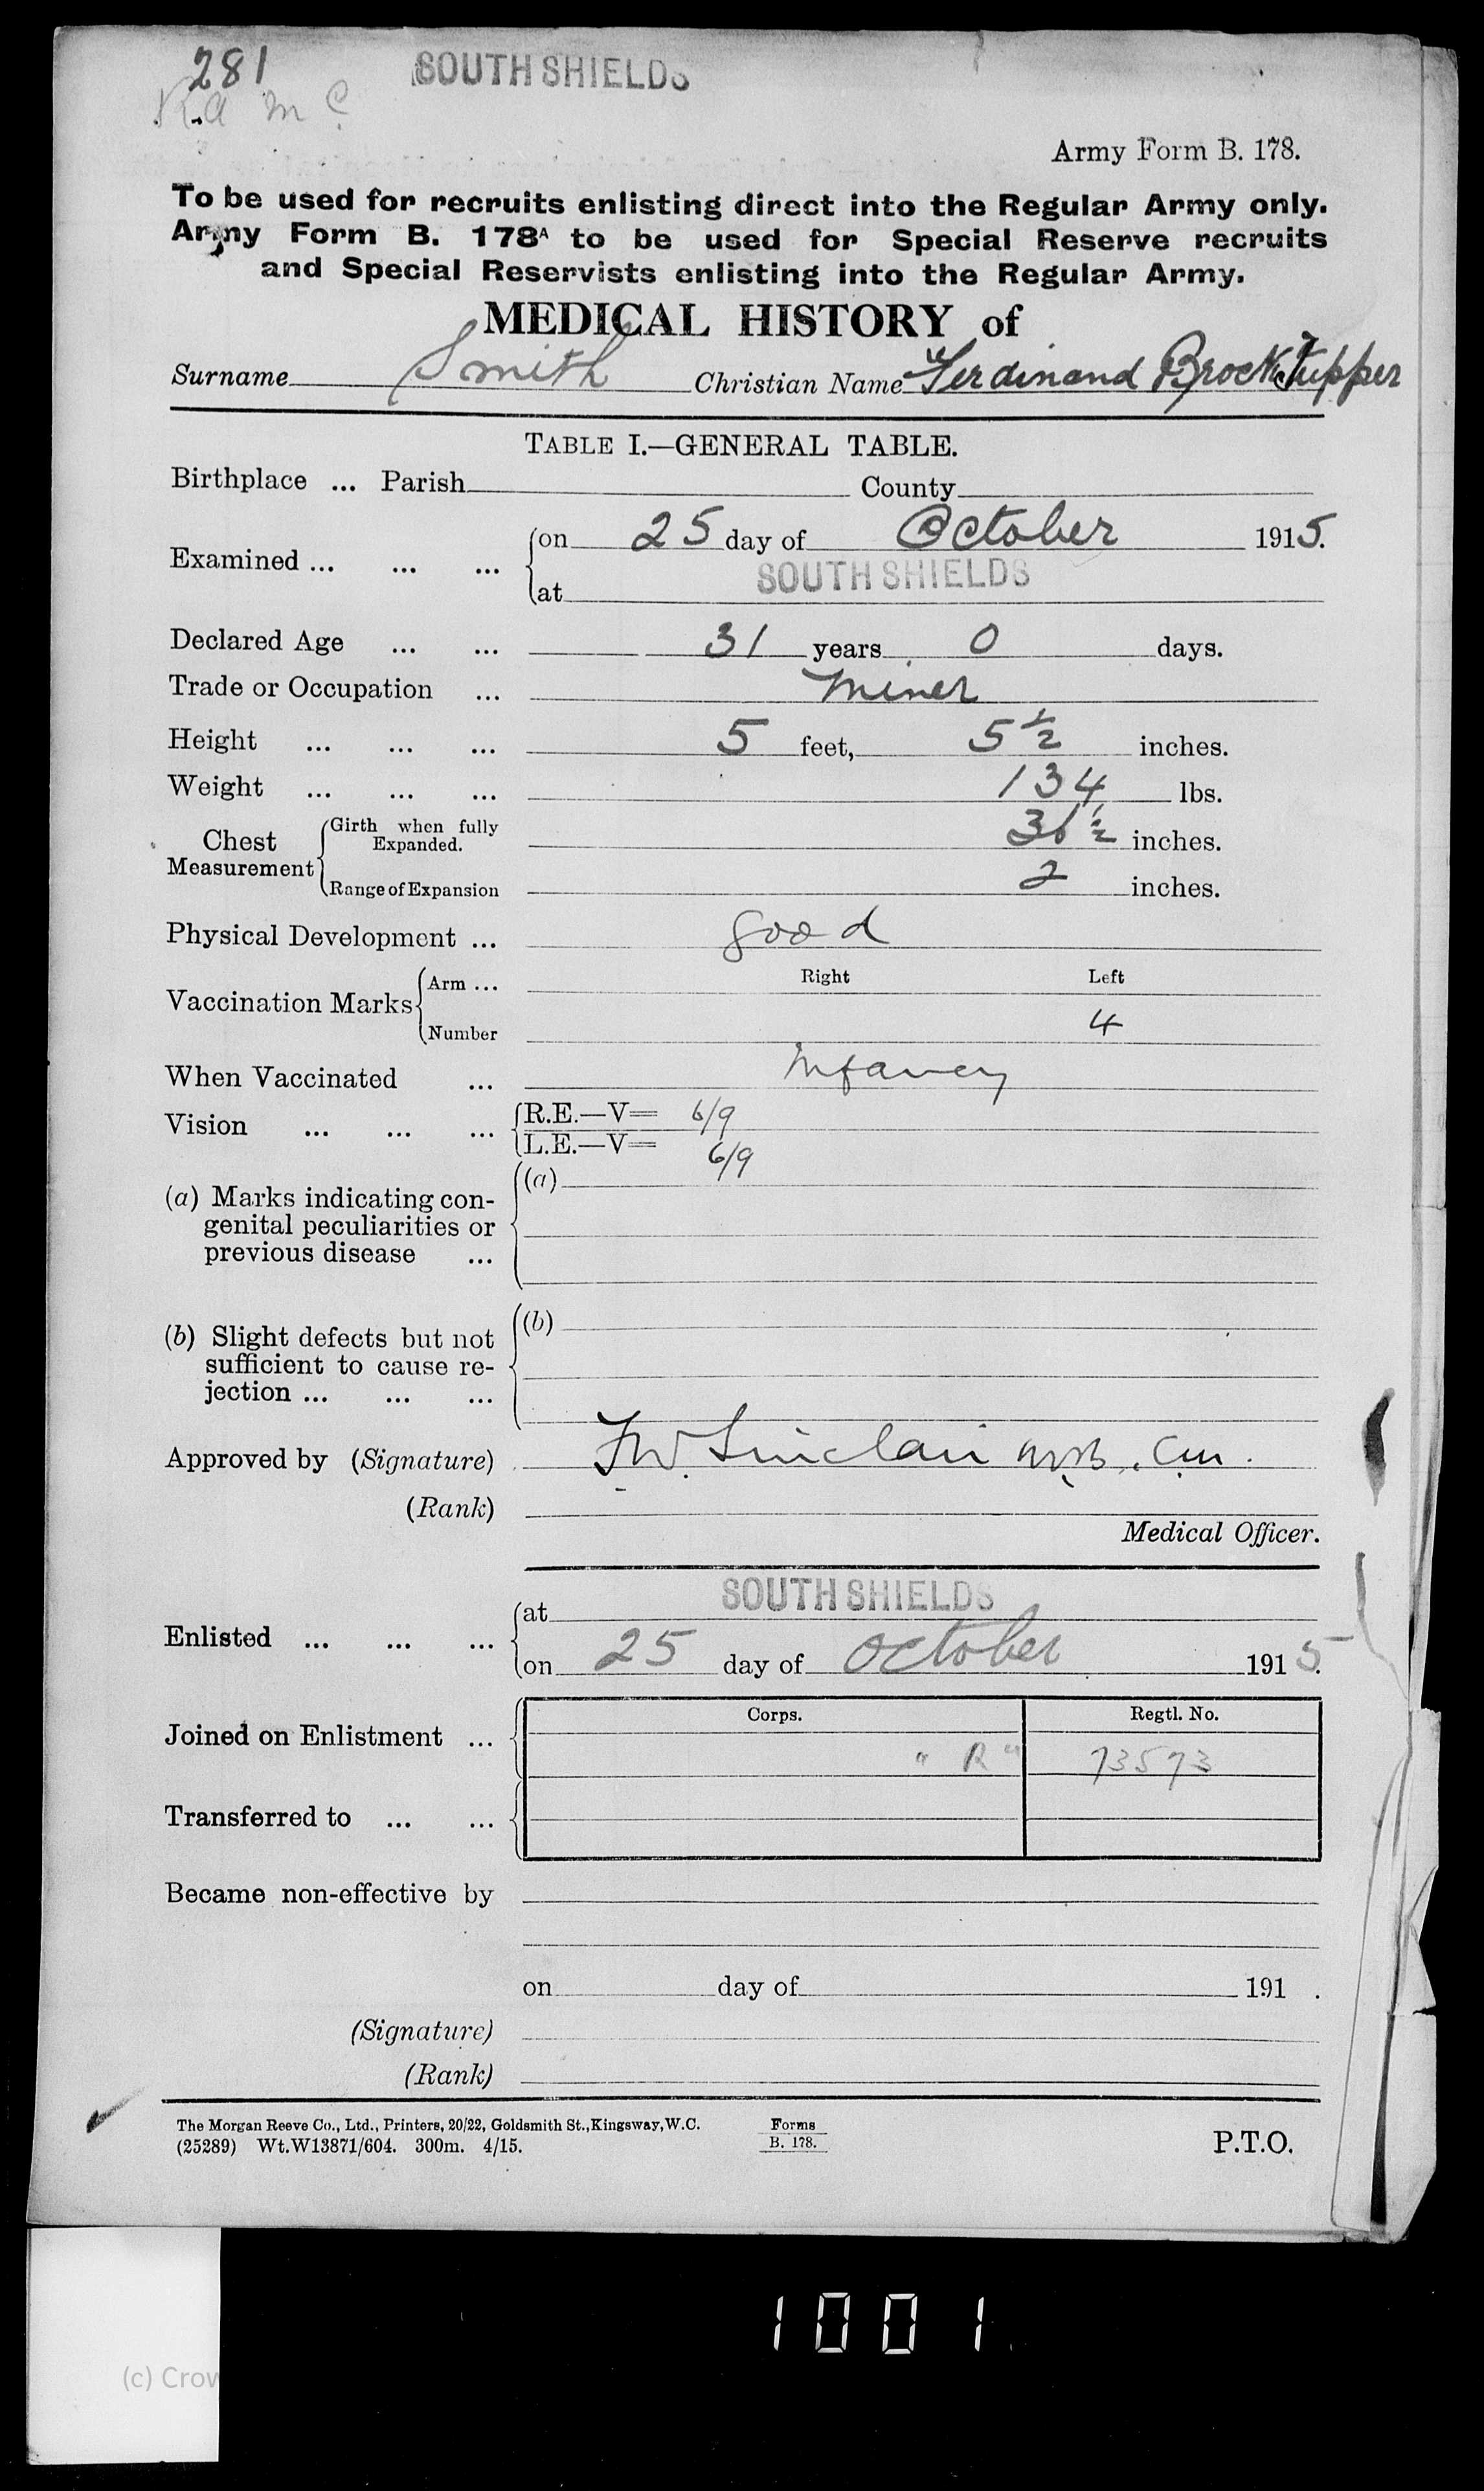 281
SOUTH SHIELDS
R.A M C
Army Form B. 178.
To be used for recruits enlisting direct into the Regular Army only.
Army Form B. 178A to be used for Special Reserve recruits
and Special Reservists enlisting into the Regular Army.
MEDICAL HISTORY of
Surname Smith Christian Name Ferdinand Brock Tupper
TABLE I.—GENERAL TABLE.
Birthplace ... Parish County
Examined ... ... ... on 25 day of October 1915.
at SOUTH SHIELDS
Declared Age ... ... 31 years 0 days.
Trade or Occupation ... Miner
Height ... ... ... 5 feet, 5 1/2 inches.
Weight ... ... ... 134 lbs.
Chest Measurement
Girth when fully Expanded. 36 1/2 inches.
Range of Expansion 2 inches.
Physical Development ... good
Right Left
Vaccination Marks Arm ...
Number 4
When Vaccinated ... Infancy
Vision ... ... ... R.E.—V= 6/9
L.E.—V= 6/9
(a) Marks indicating con- (a)
genital peculiarities or
previous disease ...
(b) Slight defects but not (b)
sufficient to cause re-
jection ... ... ...
Approved by (Signature) FW. Sinclair M.B., C.M.
(Rank)
Medical Officer.
Enlisted ... ... ... at SOUTH SHIELDS
on 25 day of October 1915.
Corps. Regtl. No.
Joined on Enlistment ... "R" 73573
Transferred to ... ...
Became non-effective by
on day of 191 .
(Signature)
(Rank)
The Morgan Reeve Co., Ltd., Printers, 20/22, Goldsmith St., Kingsway, W.C. Forms
(25289) Wt.W13871/604. 300m. 4/15. B. 178. P.T.O.
1001
(c) Crow